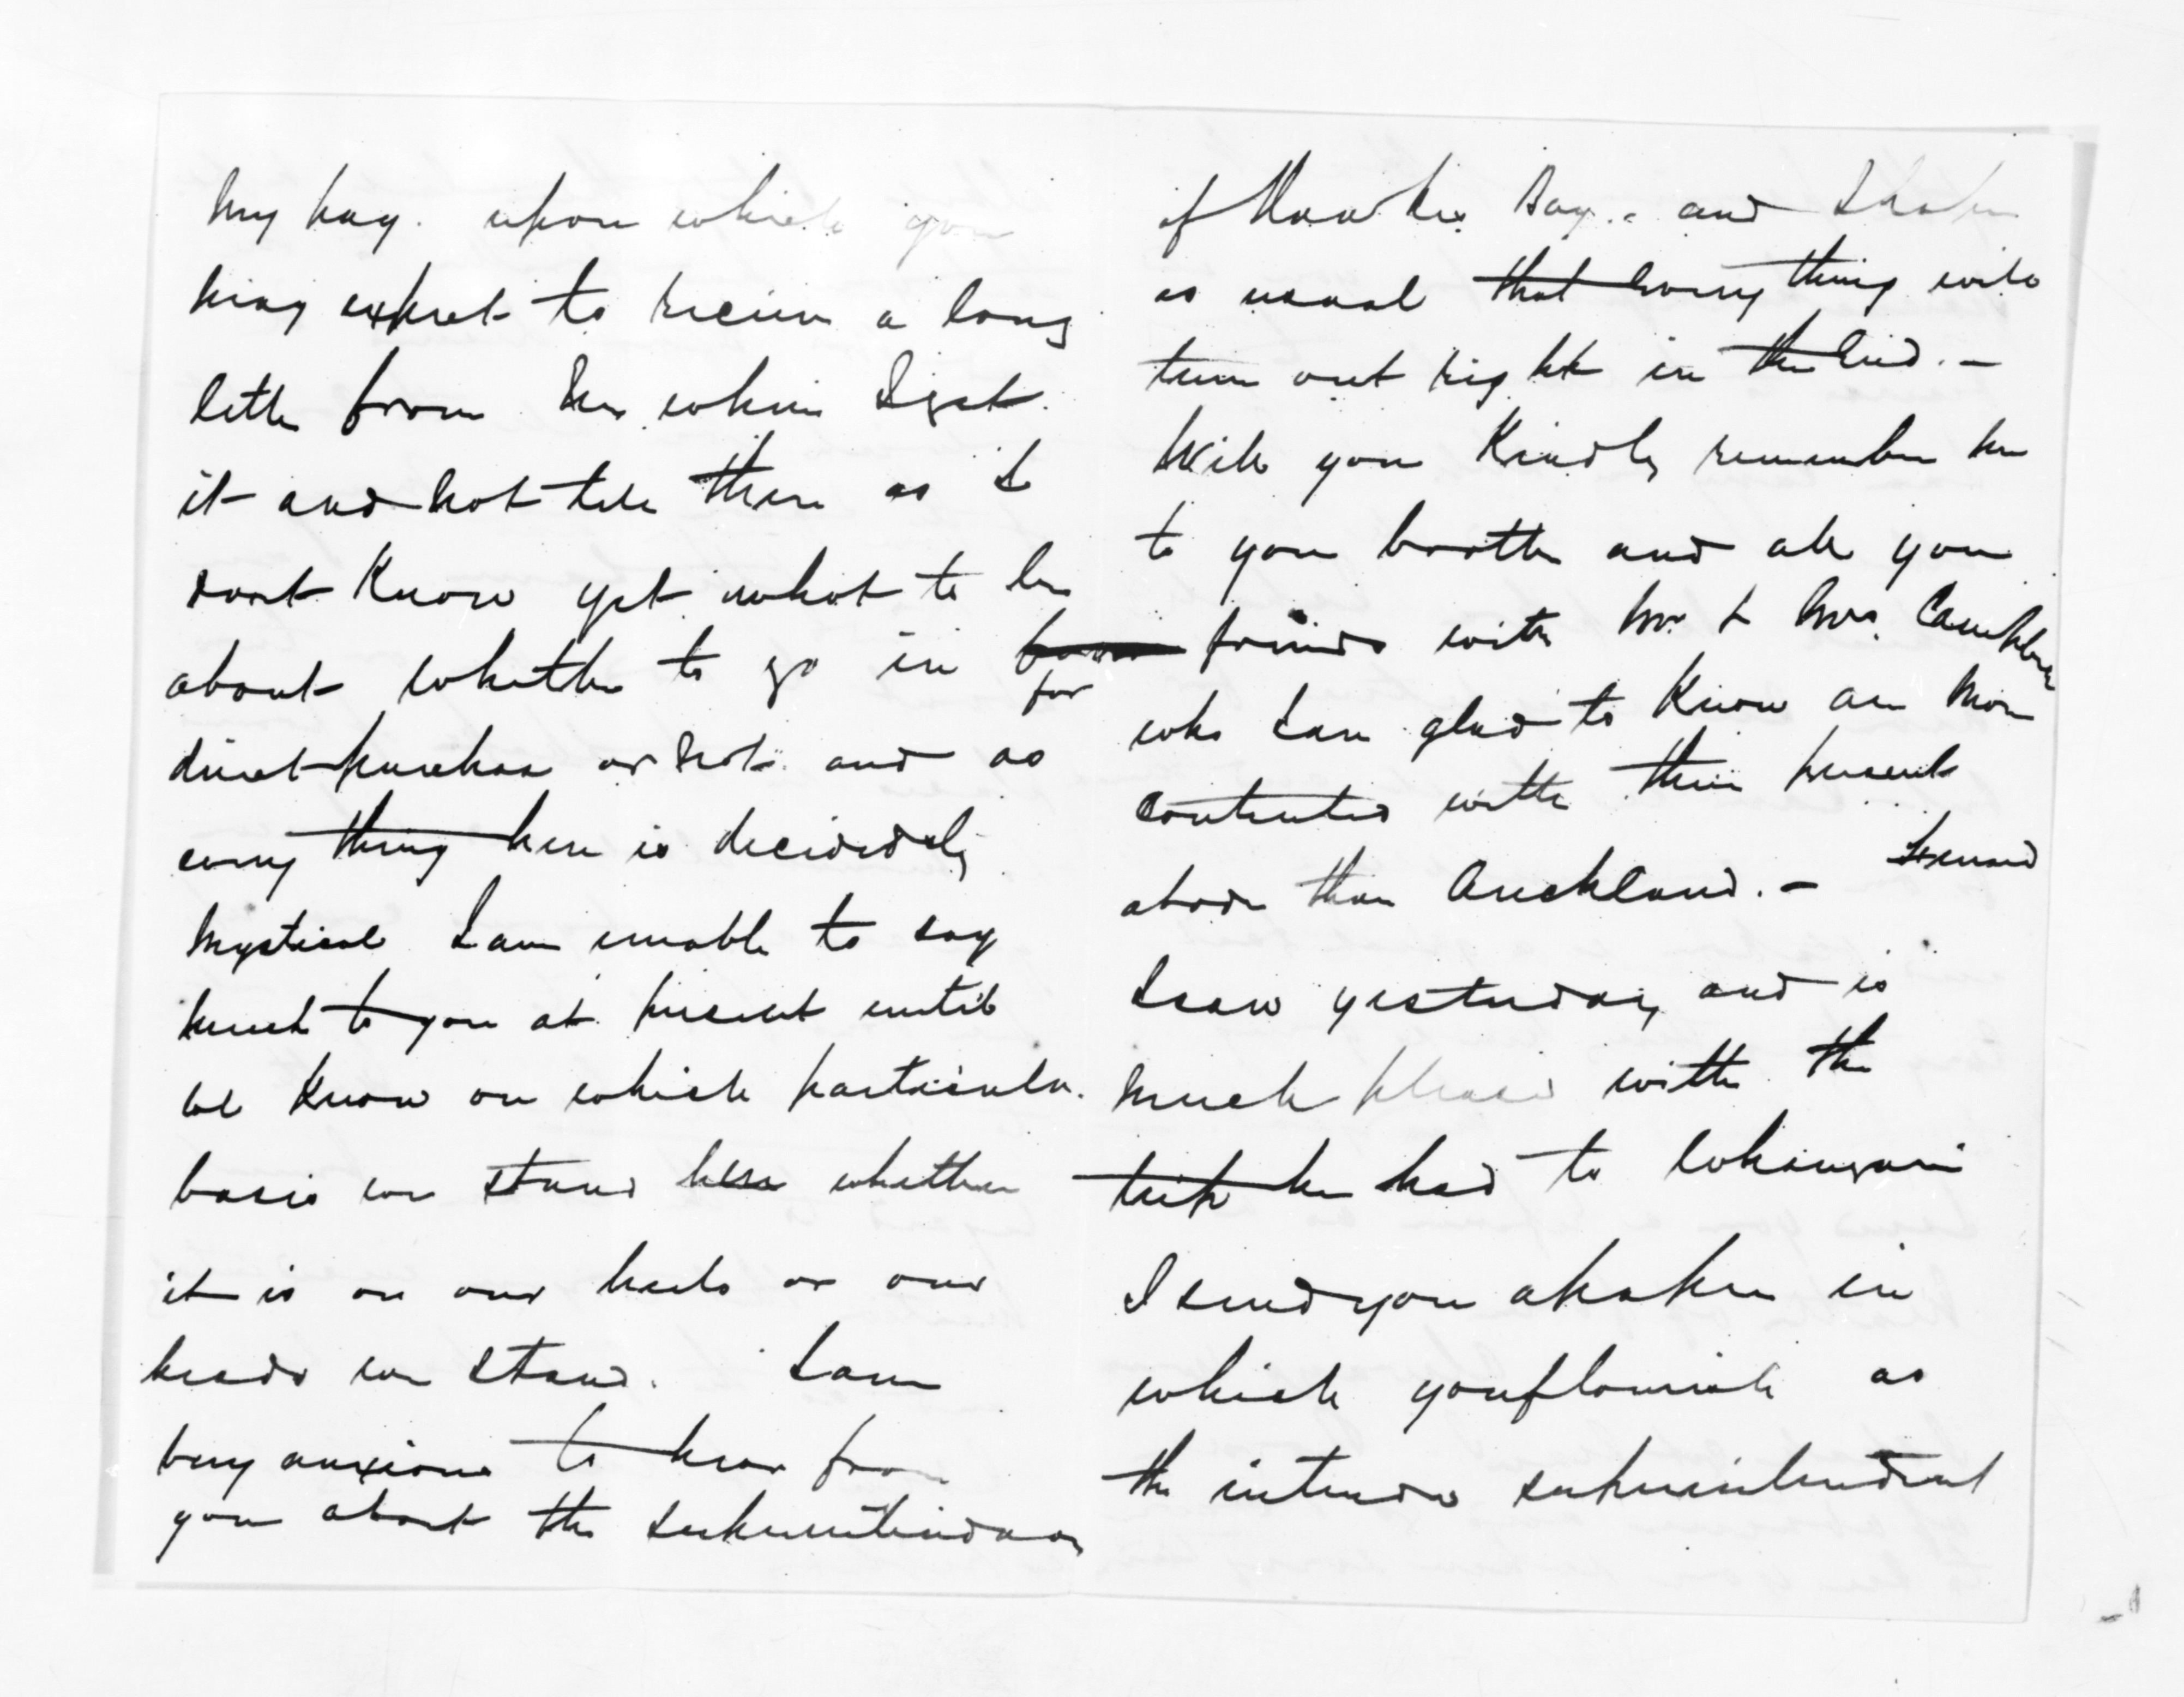 my pay. upon which you
may expect to receive a long
letter from me when I get
it and not till then as I
dont know yet what to be
about whether to go in
for
direct purchase or not. and as
every thing here is decidedly
mystical I am unable to say
much to you at present until
we know on which particular
basis we stand whether
it is on our heels or our
heads we stand. I am
very anxious to hear from
you about the Superintendency
of Hawkes Bay. and I hope
as usual that every thing will
turn out right in the End. –
Will you Kindly remember me
to your brother and all your
friends with Mr & Mrs. Campbell
who I am glad to know are more
contented with their present
abode than Auckland. –
I saw yesterday and is
much pleased with the
trip he had to Whaingaroa
I send you a paper in
which you flourish as
the intended superintendent